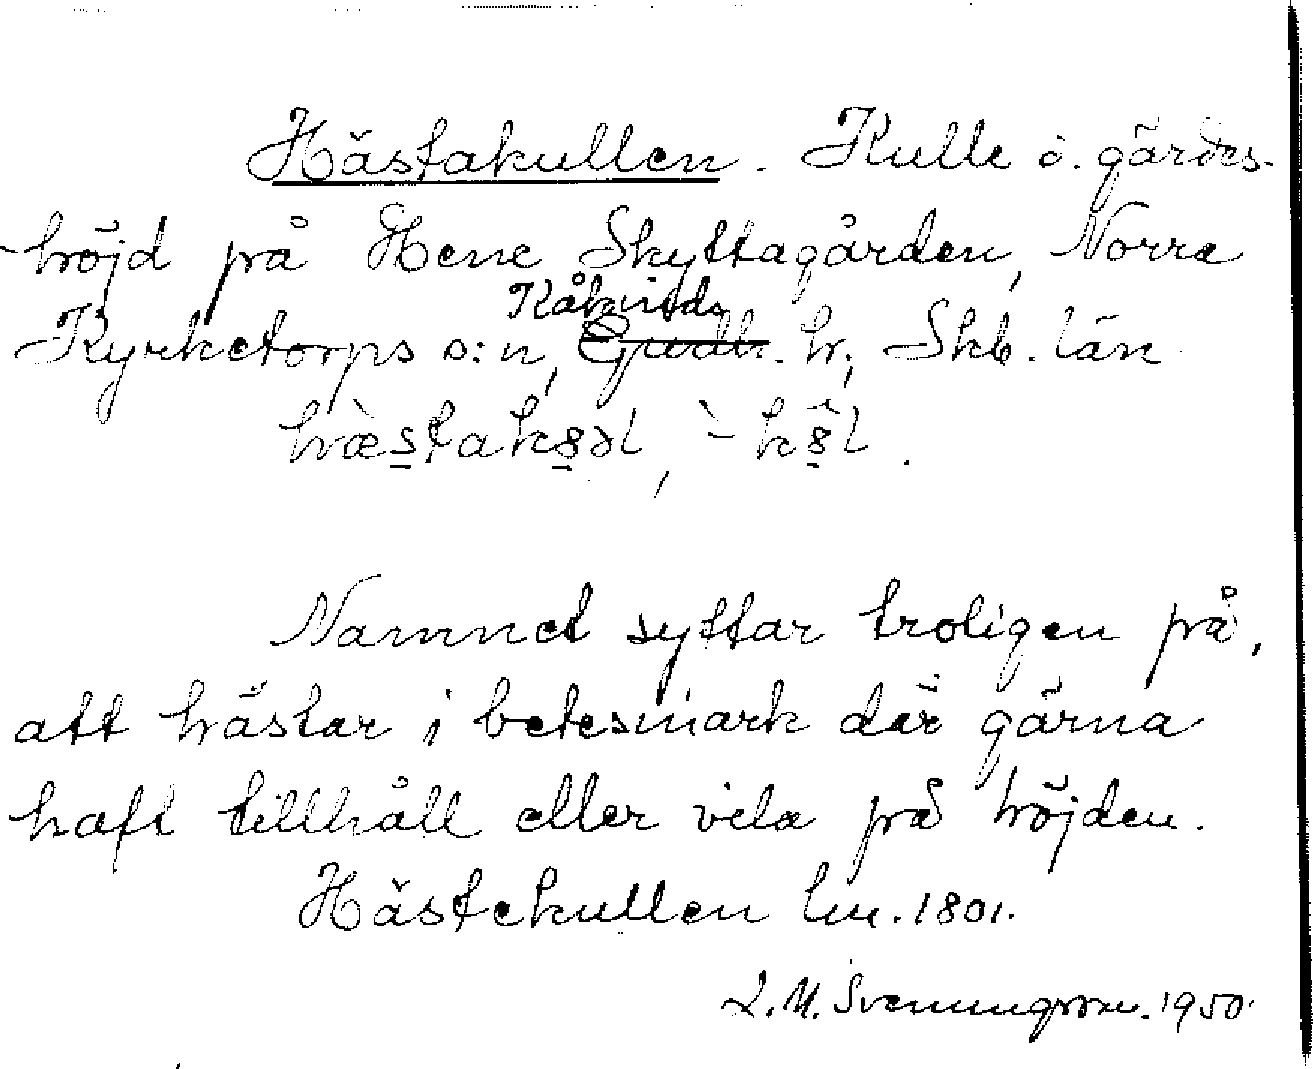 Hästakullen. Kulle o. gärdes-
höjd på Hene Skyttagården, Norra
Kåkinds
Kyrketorps s:n, Gudh. hr, Skb. län
hæ̀stakȣəl, `-kȣ̂l.
Namnet syftar troligen på,
att hästar i betesmark där gärna
haft tillhåll eller vila på höjden.
Hästekullen lm. 1801.
L. M. Svenungsson. 1950.